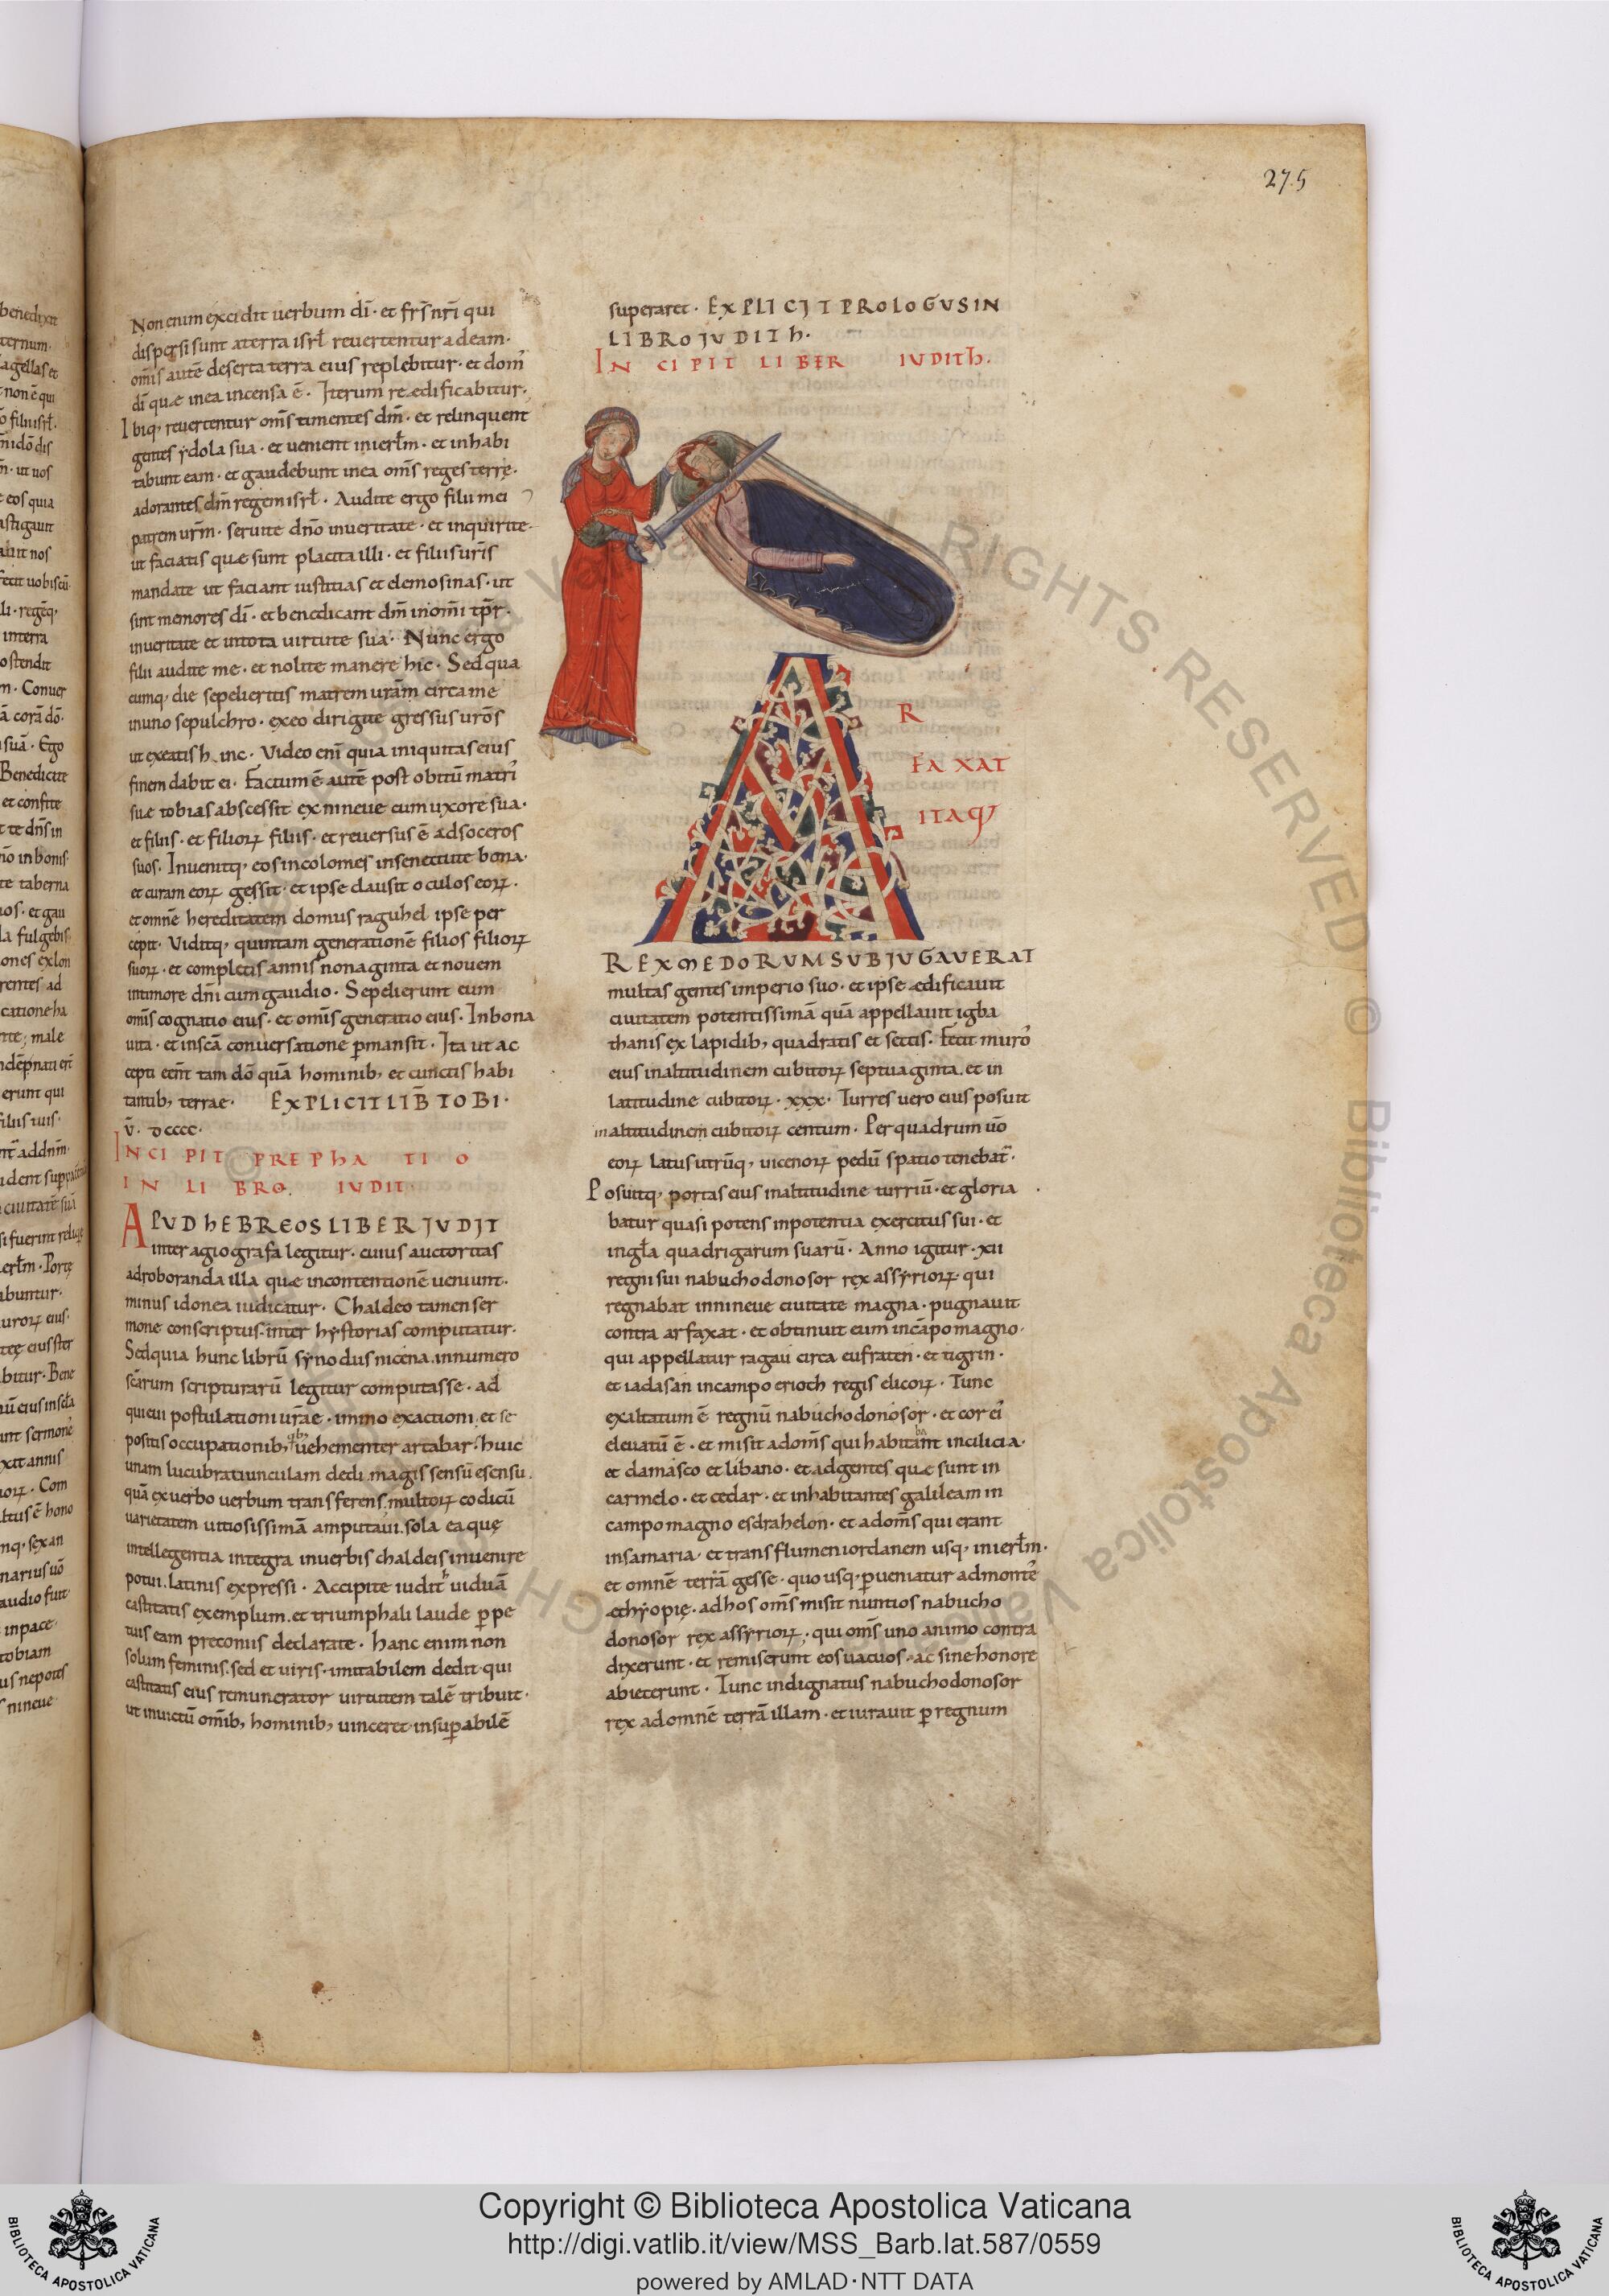 275
Non enim excidit uerbum dī · et fr̄s nr̄i qui
dispersi sunt a terra isrł reuertentur ad eam ·
om̄s autē deserta terra eius replebitur · et dom̄
dī quæ in ea incensa ē · Iterum reedificabitur ·
Ibiq; reuertentur om̄s timentes dm̄ · et relinquent
gentes ydola sua · et uenient in ierłm · et inhabi
tabunt eam · et gaudebunt in ea om̄s reges terrę ·
adorantes dm̄ regem isrł · Audite ergo filii mei
patrem ur̄m · seruite dn̄o in ueritate · et inquirite ·
ut faciatis quæ sunt placita illi · et filiis ur̄is
mandate ut faciant iustitias et elemosinas · ut
sint memores dī · et benedicant dm̄ in om̄i tp̄r ·
in ueritate et in tota uirtute sua · Nunc ergo
filii audite me · et nolite manere hic · Sed qua
cumq; die sepelieritis matrem uram̄ circa me
in uno sepulchro · exeo dirigite gressus uros̄
ut exeatis hinc · Video eni͞ quia iniquitas eius
finem dabit ei · Factum ē autē post obitū matri᾽
suæ tobias abscessit ex nineue cum uxore sua ·
et filiis · et filioꝝ filiis · et reuersus ē ad soceros
suos · Inuenitq; eos incolomes in senectute bona ·
et curam eoꝝ gessit · et ipse clausit oculos eoꝝ ·
et omnē hereditatem domus raguhel ipse per
cepit · Viditq; quintam generationē filios filioꝝ
suoꝝ · et completis annis nonaginta et nouem
in timore dn̄i cum gaudio · Sepelierunt eum
omīs cognatio eius · et omīs generatio eius · In bona
uita · et in scā conuersatione ꝑmansit · Ita ut ac
cepti eēnt tam dō quā hominib; et cunctis habi
tantib; terrae · EXPLICIT LIB̄ TOBI ·
v̄ · DCCCC ·
INCIPIT PREPHATIO
IN LIBRO IUDIT ·
APUD HEBREOS LIBER IUDIT
inter agiografa legitur · cuius auctoritas
ad roboranda illa quæ in contentionē ueniunt ·
minus idonea iudicatur · Chaldeo tamen ser
mone conscriptus · inter hystorias computatur ·
Sed quia hunc librū synodus nicena in numero
scārum scripturarū legitur computasse · ad
quieui postulationi uræ · immo exactioni · et se
positis occupationib; qb; uehementer artabar · huic
unam lucubratiunculam dedi · magis sensū e sensu ·
quā ex uerbo uerbum transferens · multoꝝ codicū
uarietatem uitiosissimā amputaui · sola ea quę
intellegentia integra in uerbis chaldeis inuenire
potui · latinis expressi · Accipite iudith uiduā
castitatis exemplum · et triumphali laude ꝑpe
tuis eam preconiis declarate · hanc enim non
solum feminis · sed et uiris · imitabilem dedit · qui
castitatis eius remunerator uirtutem talē tribuit ·
ut inuictū om̄ib; hominib; uinceret · insuꝑabilē
superaret · EXPLICIT PROLOGUS IN
LIBRO IUDITH ·
INCIPIT LIBER IUDITH ·
AR
FAXAT
ITAQ;
REX MEDORUM SUBIUGAVERAT
multas gentes imperio suo · et ipse ædificauit
ciuitatem potentissimā quā appellauit igba
thanis ex lapidib; quadratis et sectis · Fecit muro᾽
eius in altitudinem cubitoꝝ septuaginta · et in
latitudine cubitoꝝ · xxx · Turres uero eius posuit
in altitudinem cubitoꝝ centum · Per quadrum uō
eoꝝ latus utrūq; uicenoꝝ pedū spatio tenebat᾽ ·
Posuitq; portas eius in altitudine turriū · et gloria
batur quasi potens in potentia exercitus sui · et
in gła quadrigarum suarū · Anno igitur · xii
regni sui nabuchodonosor rex assyrioꝝ · qui
regnabat in nineue ciuitate magna · pugnauit
contra arfaxat · et obtinuit eum in cāpo magno ·
qui appellatur ragau circa eufraten · et tigrin ·
et iadasan in campo erioch regis elicoꝝ · Tunc
exaltatum ē regnū nabuchodonosor · et cor ei᾽
eleuatū ē · et misit ad om̄s qui habitabant in cilicia ·
et damasco et libano · et ad gentes quæ sunt in
carmelo · et cedar · et inhabitantes galileam in
campo magno esdrahelon · et ad om̄s qui erant
in samaria · et trans flumen iordanem usq; in ierłm ·
et omnē terrā gesse · quo usq; ꝑueniatur ad monte᾽
æthyopię · ad hos om̄s misit nuntios nabucho
donosor rex assyrioꝝ · qui om̄s uno animo contra
dixerunt · et remiserunt eos uacuos · ac sine honore
abiecerunt · Tunc indignatus nabuchodonosor
rex ad omnē terrā illam · et iurauit ꝑ regnum
Copyright © Biblioteca Apostolica Vaticana
http://digi.vatlib.it/view/MSS_Barb.lat.587/0559
powered by AMLAD·NTT DATA
BIBLIOTECA APOSTOLICA VATICANA
BIBLIOTECA APOSTOLICA VATICANA